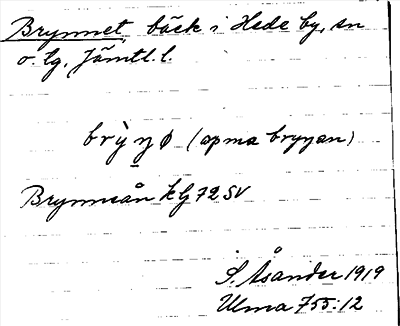 Brynnet, bäck i Hede by, sn
o. tg, Jämtl. l.
brỳn̠ø (opma bryŋan)
Brynneån kg 72 SV
S. Åsander 1919
Ulma 755:12